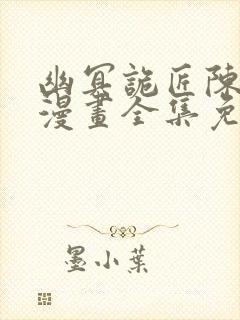 幽冥詭匠陳
漫畫全集免
墨小葉